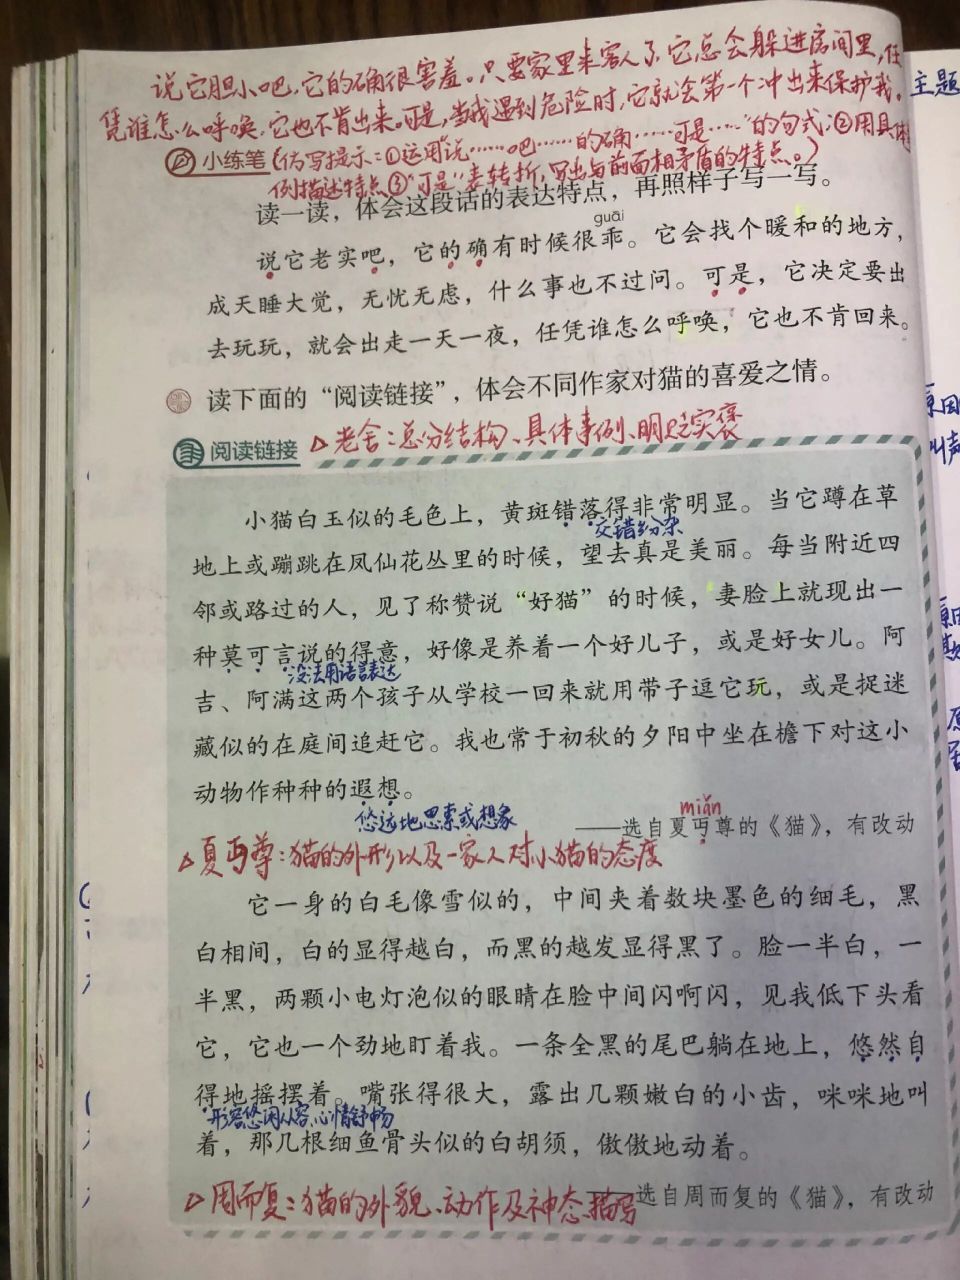 说它胆小吧,它的确很害羞。只要家里来客人了,它总会躲进房间里,任
凭谁怎么呼唤,它也不肯出来。可是,当我遇到危险时,它就会第一个冲出来保护我。
主题
小练笔(仿写提示:①运用“说……吧……的确……可是……”的句式;②用具体
例描述特点③“可是”表转折,写出与前面相矛盾的特点。)
读一读,体会这段话的表达特点,再照样子写一写。
guāi
说它老实吧,它的确有时候很乖。它会找个暖和的地方,
成天睡大觉,无忧无虑,什么事也不过问。可是,它决定要出
去玩玩,就会出走一天一夜,任凭谁怎么呼唤,它也不肯回来。
读下面的“阅读链接”,体会不同作家对猫的喜爱之情。
原因
叫声
阅读链接
▷老舍:总分结构、具体事例、明贬实褒
小猫白玉似的毛色上,黄斑错落得非常明显。当它蹲在草
交错纷杂
地上或蹦跳在凤仙花丛里的时候,望去真是美丽。每当附近四
邻或路过的人,见了称赞说“好猫”的时候,妻脸上就现出一
种莫可言说的得意,好像是养着一个好儿子,或是好女儿。阿
没法用语言表达
吉、阿满这两个孩子从学校一回来就用带子逗它玩,或是捉迷
藏似的在庭间追赶它。我也常于初秋的夕阳中坐在檐下对这小
动物作种种的遐想。
悠远地思索或想象
miǎn
——选自夏丏尊的《猫》,有改动
▷夏丏尊:猫的外形以及一家人对小猫的态度
它一身的白毛像雪似的,中间夹着数块墨色的细毛,黑
白相间,白的显得越白,而黑的越发显得黑了。脸一半白,一
半黑,两颗小电灯泡似的眼睛在脸中间闪啊闪,见我低下头看
它,它也一个劲地盯着我。一条全黑的尾巴躺在地上,悠然自
得地摇摆着。嘴张得很大,露出几颗嫩白的小齿,咪咪地叫
形容悠闲从容,心情舒畅
着,那几根细鱼骨头似的白胡须,傲傲地动着。
▷周而复:猫的外貌、动作及神态描写
选自周而复的《猫》,有改动